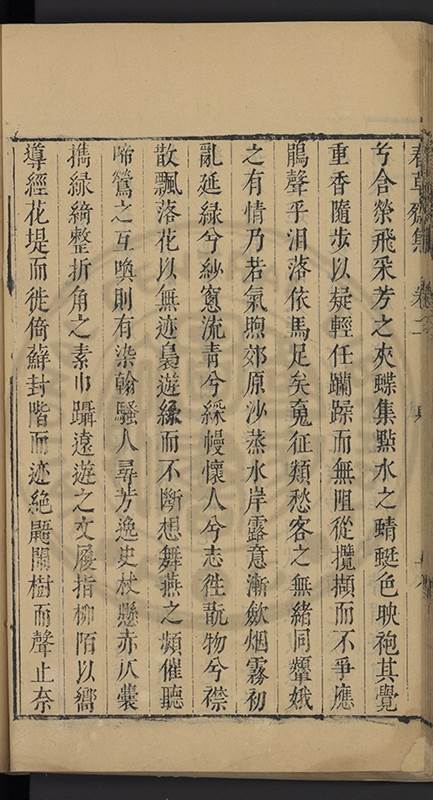 春草齋集　卷二
兮含榮飛采芳之夾蝶集點水之蜻蜓色映袍其覺
重香隨步以凝輕任躝躁而無阻從攬擷而不爭應
鵑聲乎泪落依馬足矣䰟征類愁客之無緒同顰娥
之有情乃若氣煦郊原沙蒸水岸露意漸歛烟霧初
亂延緑兮紗窻流青兮綵幔懷人兮志徃翫物兮襟
散飄落花以無迹裊遊絲而不斷想舞燕之頻催聽
啼鶯之互喚則有染翰騷人尋芳逸史杖懸赤仄囊
攜緑綺整折角之素巾躡遠遊之文履指柳陌以嚮
導經花堤而徙倚蘚封階而迹絶鼯閙樹而聲止奈